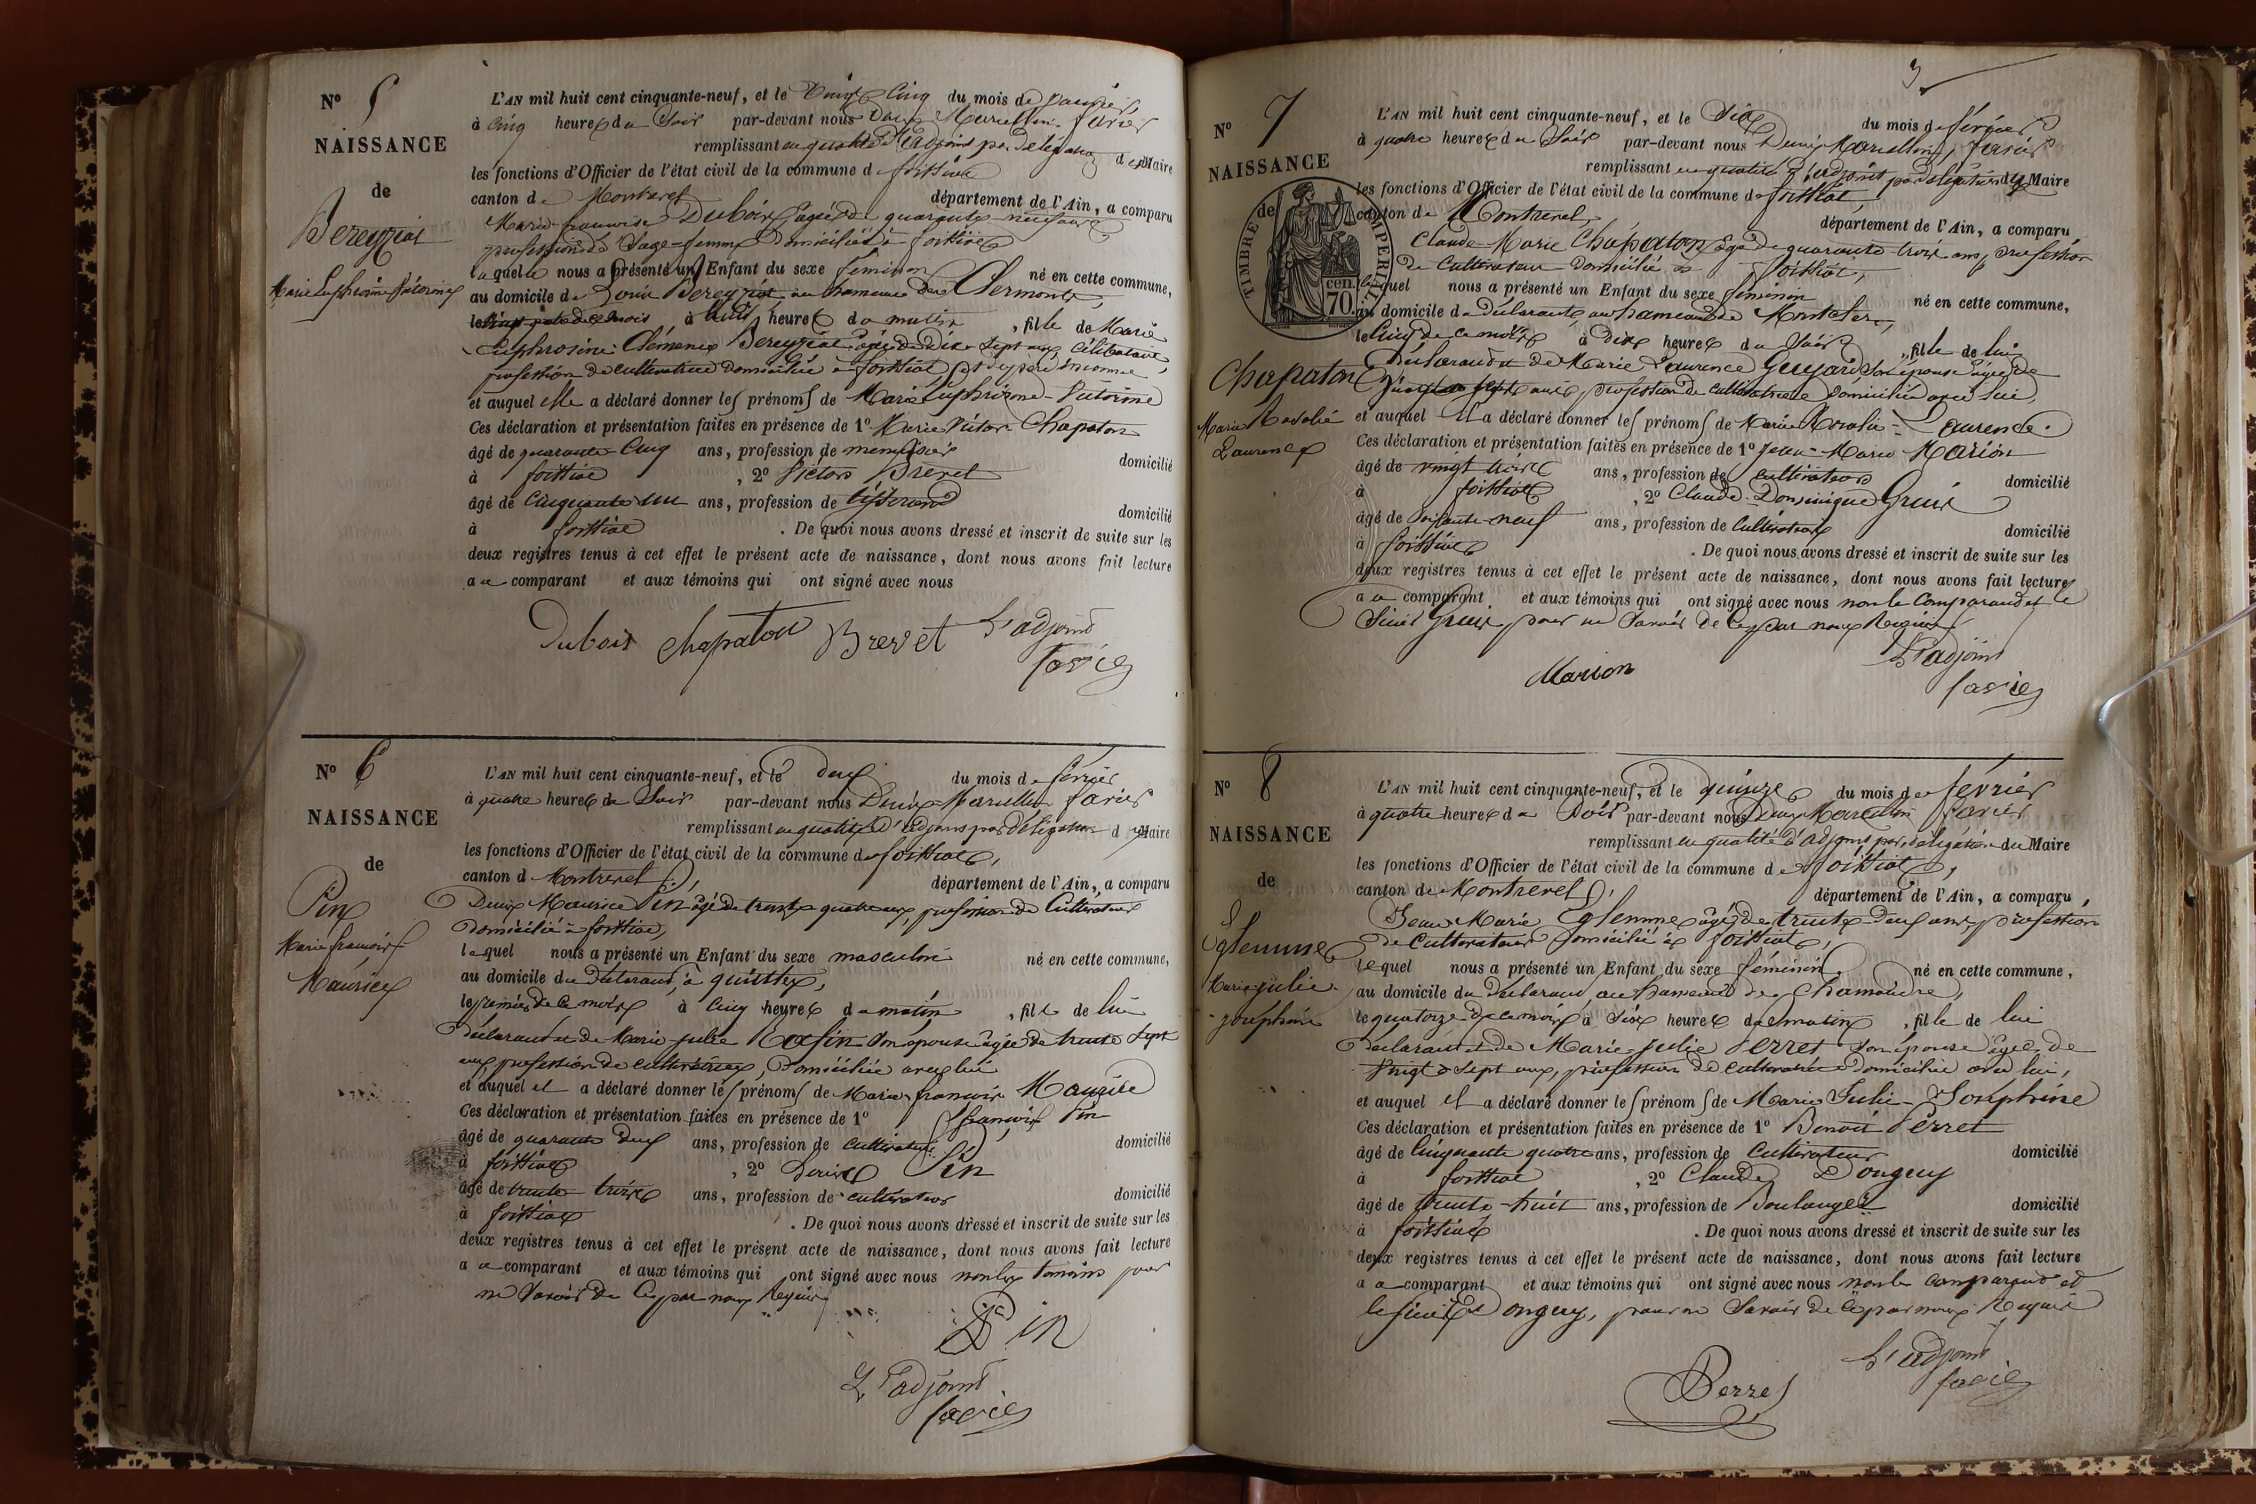 N° 5
NAISSANCE
de
Bereyziat
Marie Euphrosine Victorine
L'AN mil huit cent cinquante-neuf, et le vingt cinq du mois de janvier
à cinq heures du soir par-devant nous Denis Marcellin favier
remplissant en qualité d'adjoint par délégation du Maire
les fonctions d'Officier de l'état civil de la commune de foissiat
canton de Montrevel département de l'Ain, a comparu
Marie françoise Dubois agée de quarante neuf ans
profession de Sage-femme domiciliée à foissiat
laquelle nous a présenté un Enfant du sexe féminin né en cette commune,
au domicile de Bereyziat au hameau de Clermont,
le de ce mois à huit heures du matin, fille de Marie
Euphrosine Clémence Bereyziat agée de dix sept ans, célibataire,
profession de cultivatrice domiciliée à foissiat, et de père inconnu
et auquel elle a déclaré donner les prénoms de Marie Euphrosine Victorine
Ces déclaration et présentation faites en présence de 1° Marie Victor Chapaton
âgé de quarante cinq ans, profession de menuisier domicilié
à foissiat, 2° Victor Brevet
âgé de cinquante un ans, profession de tisserand domicilié
à foissiat. De quoi nous avons dressé et inscrit de suite sur les
deux registres tenus à cet effet le présent acte de naissance, dont nous avons fait lecture
au comparant et aux témoins qui ont signé avec nous
Dubois chapaton Brevet L'adjoint
favier
N° 6
NAISSANCE
de
Pin
Marie françois
Maurice
L'AN mil huit cent cinquante-neuf, et le deux du mois de février
à quatre heures du soir par-devant nous Denis Marcellin favier
remplissant en qualité d'adjoint par délégation du Maire
les fonctions d'Officier de l'état civil de la commune de foissiat,
canton de Montrevel, département de l'Ain, a comparu
Denis Maurice Pin agé de trente quatre ans, profession de Cultivateur
domicilié à foissiat,
lequel nous a présenté un Enfant du sexe masculin né en cette commune,
au domicile du déclarant, à
le premier de ce mois à cinq heures du matin, fils de lui
déclarant et de Marie julie Rafin son épouse agée de trente sept
ans, profession de cultivatrice, domiciliée avec lui
et auquel il a déclaré donner les prénoms de Marie françois Maurice
Ces déclaration et présentation faites en présence de 1° françois Pin
âgé de quarante deux ans, profession de cultivateur domicilié
à foissiat, 2° Denis Pin
âgé de trente trois ans, profession de cultivateur domicilié
à foissiat. De quoi nous avons dressé et inscrit de suite sur les
deux registres tenus à cet effet le présent acte de naissance, dont nous avons fait lecture
au comparant et aux témoins qui ont signé avec nous non les témoins pour
ne savoir de ce par nous Requis
Pin
L'adjoint
favier
3
N° 7
NAISSANCE
de
TIMBRE IMPERIAL
70 cen.
Chapaton
Marie Rosalie
Laurence
L'AN mil huit cent cinquante-neuf, et le six du mois de février
à quatre heures du soir par-devant nous Denis Marcellin favier
remplissant en qualité d'adjoint par délégation du Maire
les fonctions d'Officier de l'état civil de la commune de foissiat
canton de Montrevel, département de l'Ain, a comparu
Claude-Marie Chapaton agé de quarante trois ans, profession
de cultivateur domicilié à foissiat,
lequel nous a présenté un Enfant du sexe féminin né en cette commune,
au domicile du déclarant au hameau de
le cinq de ce mois à dix heures du soir, fille de lui
déclarant et de Marie Laurence Guyard, son épouse agée de
ans, profession de cultivatrice domiciliée avec lui,
et auquel il a déclaré donner les prénoms de Marie Rosalie Laurence.
Ces déclaration et présentation faites en présence de 1° jean-Marie Marion
âgé de vingt trois ans, profession de cultivateur domicilié
à foissiat, 2° Claude Dominique
âgé de soixante-neuf ans, profession de Cultivateur domicilié
à foissiat. De quoi nous avons dressé et inscrit de suite sur les
deux registres tenus à cet effet le présent acte de naissance, dont nous avons fait lecture
au comparant et aux témoins qui ont signé avec nous non le comparant et le
pour ne savoir de ce par nous Requis
Marion L'adjoint
favier
N° 8
NAISSANCE
de
Eglemme
Marie julie
josephine
L'AN mil huit cent cinquante-neuf, et le quinze du mois de février
à quatre heures du soir par-devant nous Denis Marcellin favier
remplissant en qualité d'adjoint par délégation du Maire
les fonctions d'Officier de l'état civil de la commune de foissiat,
canton de Montrevel, département de l'Ain, a comparu
Jean Marie Eglemme agé de trente deux ans, profession
de cultivateur domicilié à foissiat,
lequel nous a présenté un Enfant du sexe féminin né en cette commune,
au domicile du déclarant, au hameau de Chamandre,
le quatorze de ce mois à six heures du matin, fille de lui
déclarant et de Marie julie Perret son épouse agée de
vingt sept ans, profession de cultivatrice domiciliée avec lui,
et auquel il a déclaré donner les prénoms de Marie Julie Joséphine
Ces déclaration et présentation faites en présence de 1° Benoit Perret
âgé de cinquante quatre ans, profession de cultivateur domicilié
à foissiat, 2° Claude Donguy
âgé de trente-huit ans, profession de Boulanger domicilié
à foissiat. De quoi nous avons dressé et inscrit de suite sur les
deux registres tenus à cet effet le présent acte de naissance, dont nous avons fait lecture
au comparant et aux témoins qui ont signé avec nous non le comparant et
le Donguy, pour ne savoir de ce par nous Requis
Perret L'adjoint
favier